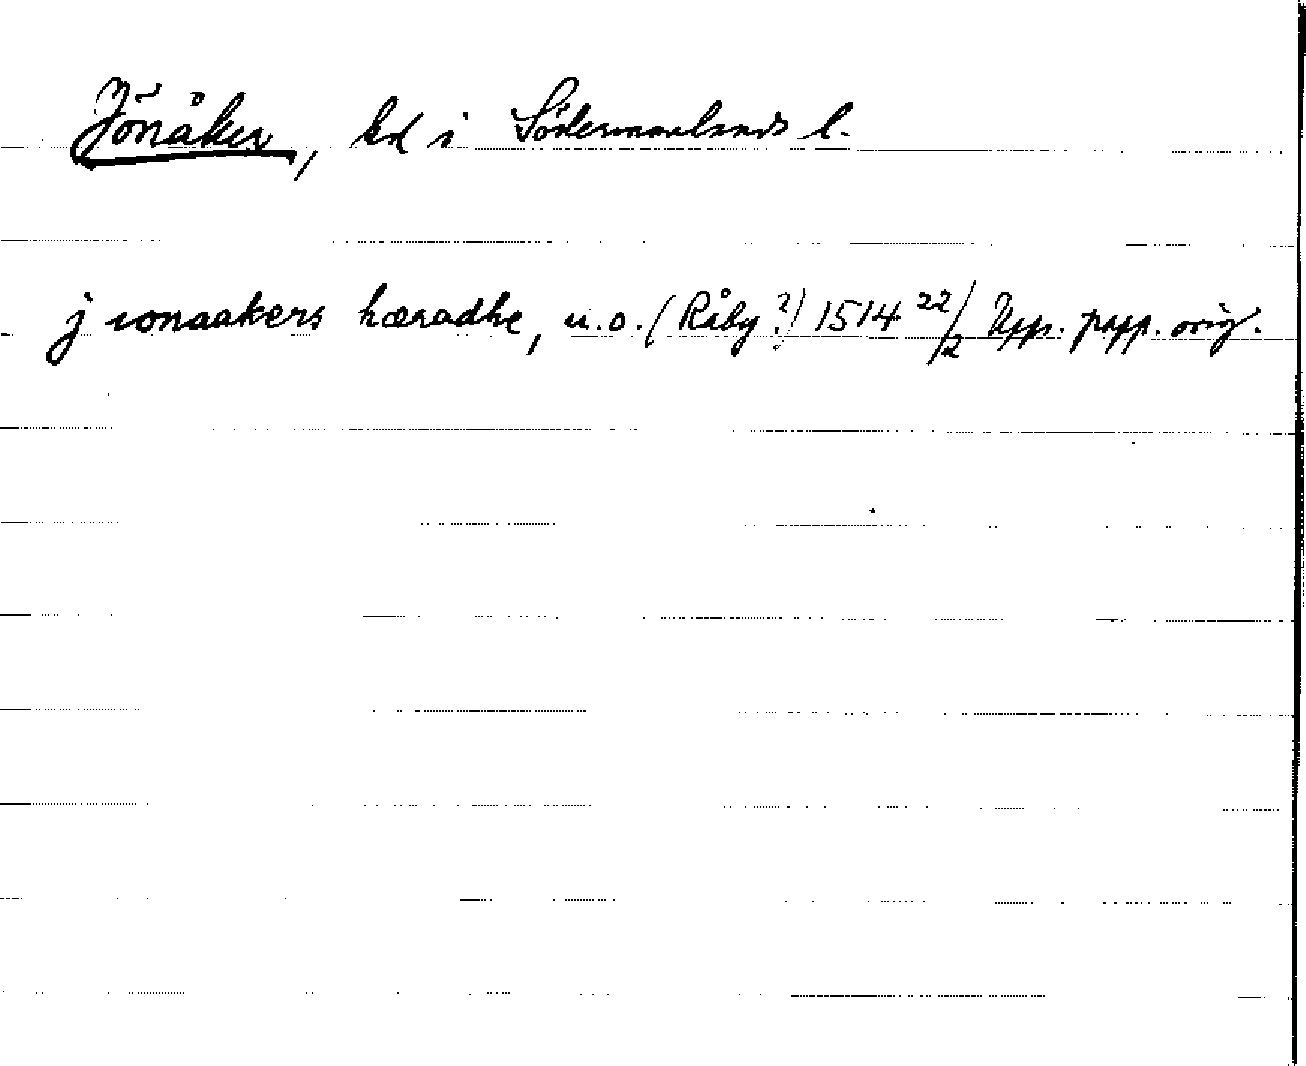 Jönåker, hd i Södermanlands l.
j ionaakers hæradhe, u.o. (Råby?) 1514 22/2 Upp. papp. orig.